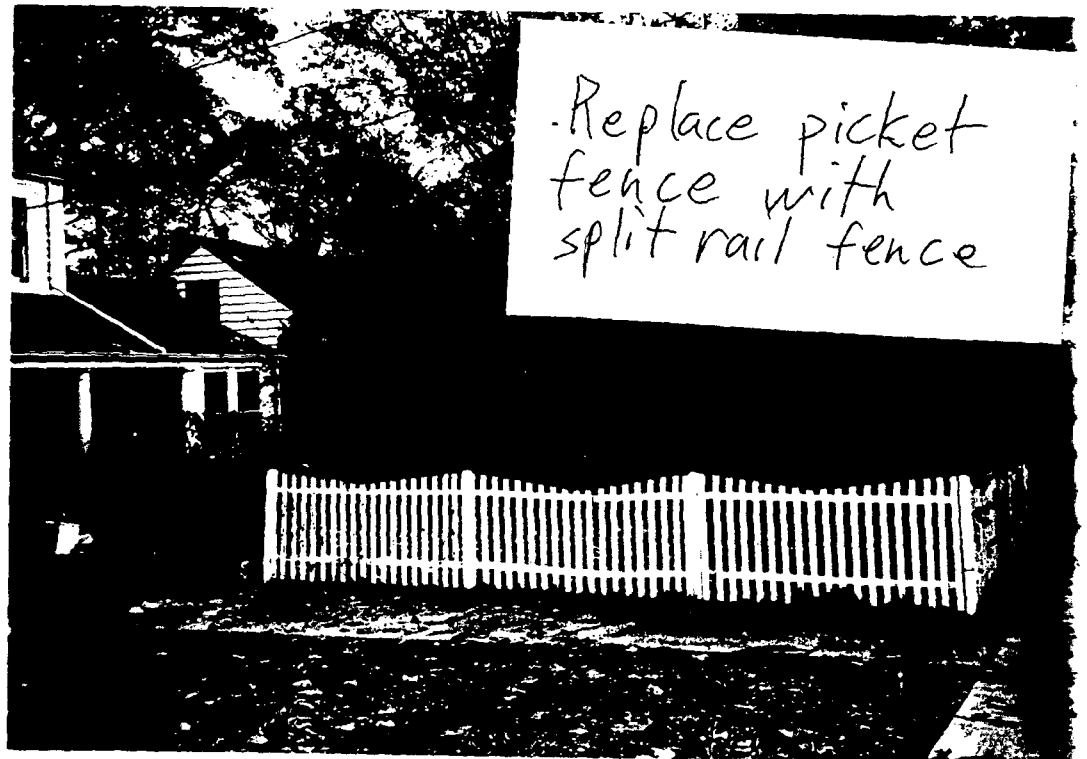 .Replace picket
fence with
split rail fence